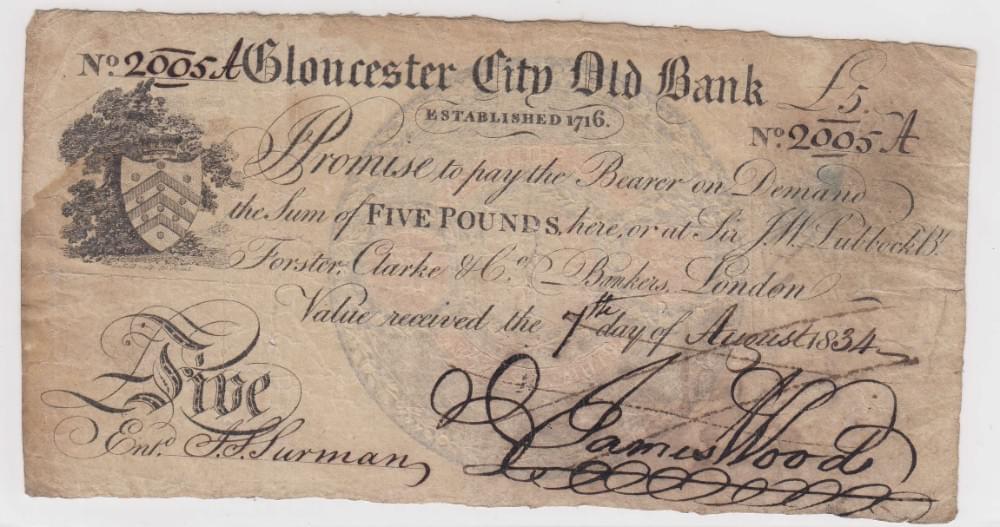 No. 2005 A Gloucester City Old Bank £5.
ESTABLISHED 1716.
No. 2005 A
I Promise to pay the Bearer on Demand
the Sum of FIVE POUNDS, here, or at Sir J.W. Lubbock Bt.
Forster, Clarke & Co. Bankers, London
Value received the 7th day of August 1834
Five
Entd. J.S. Surman
James Wood